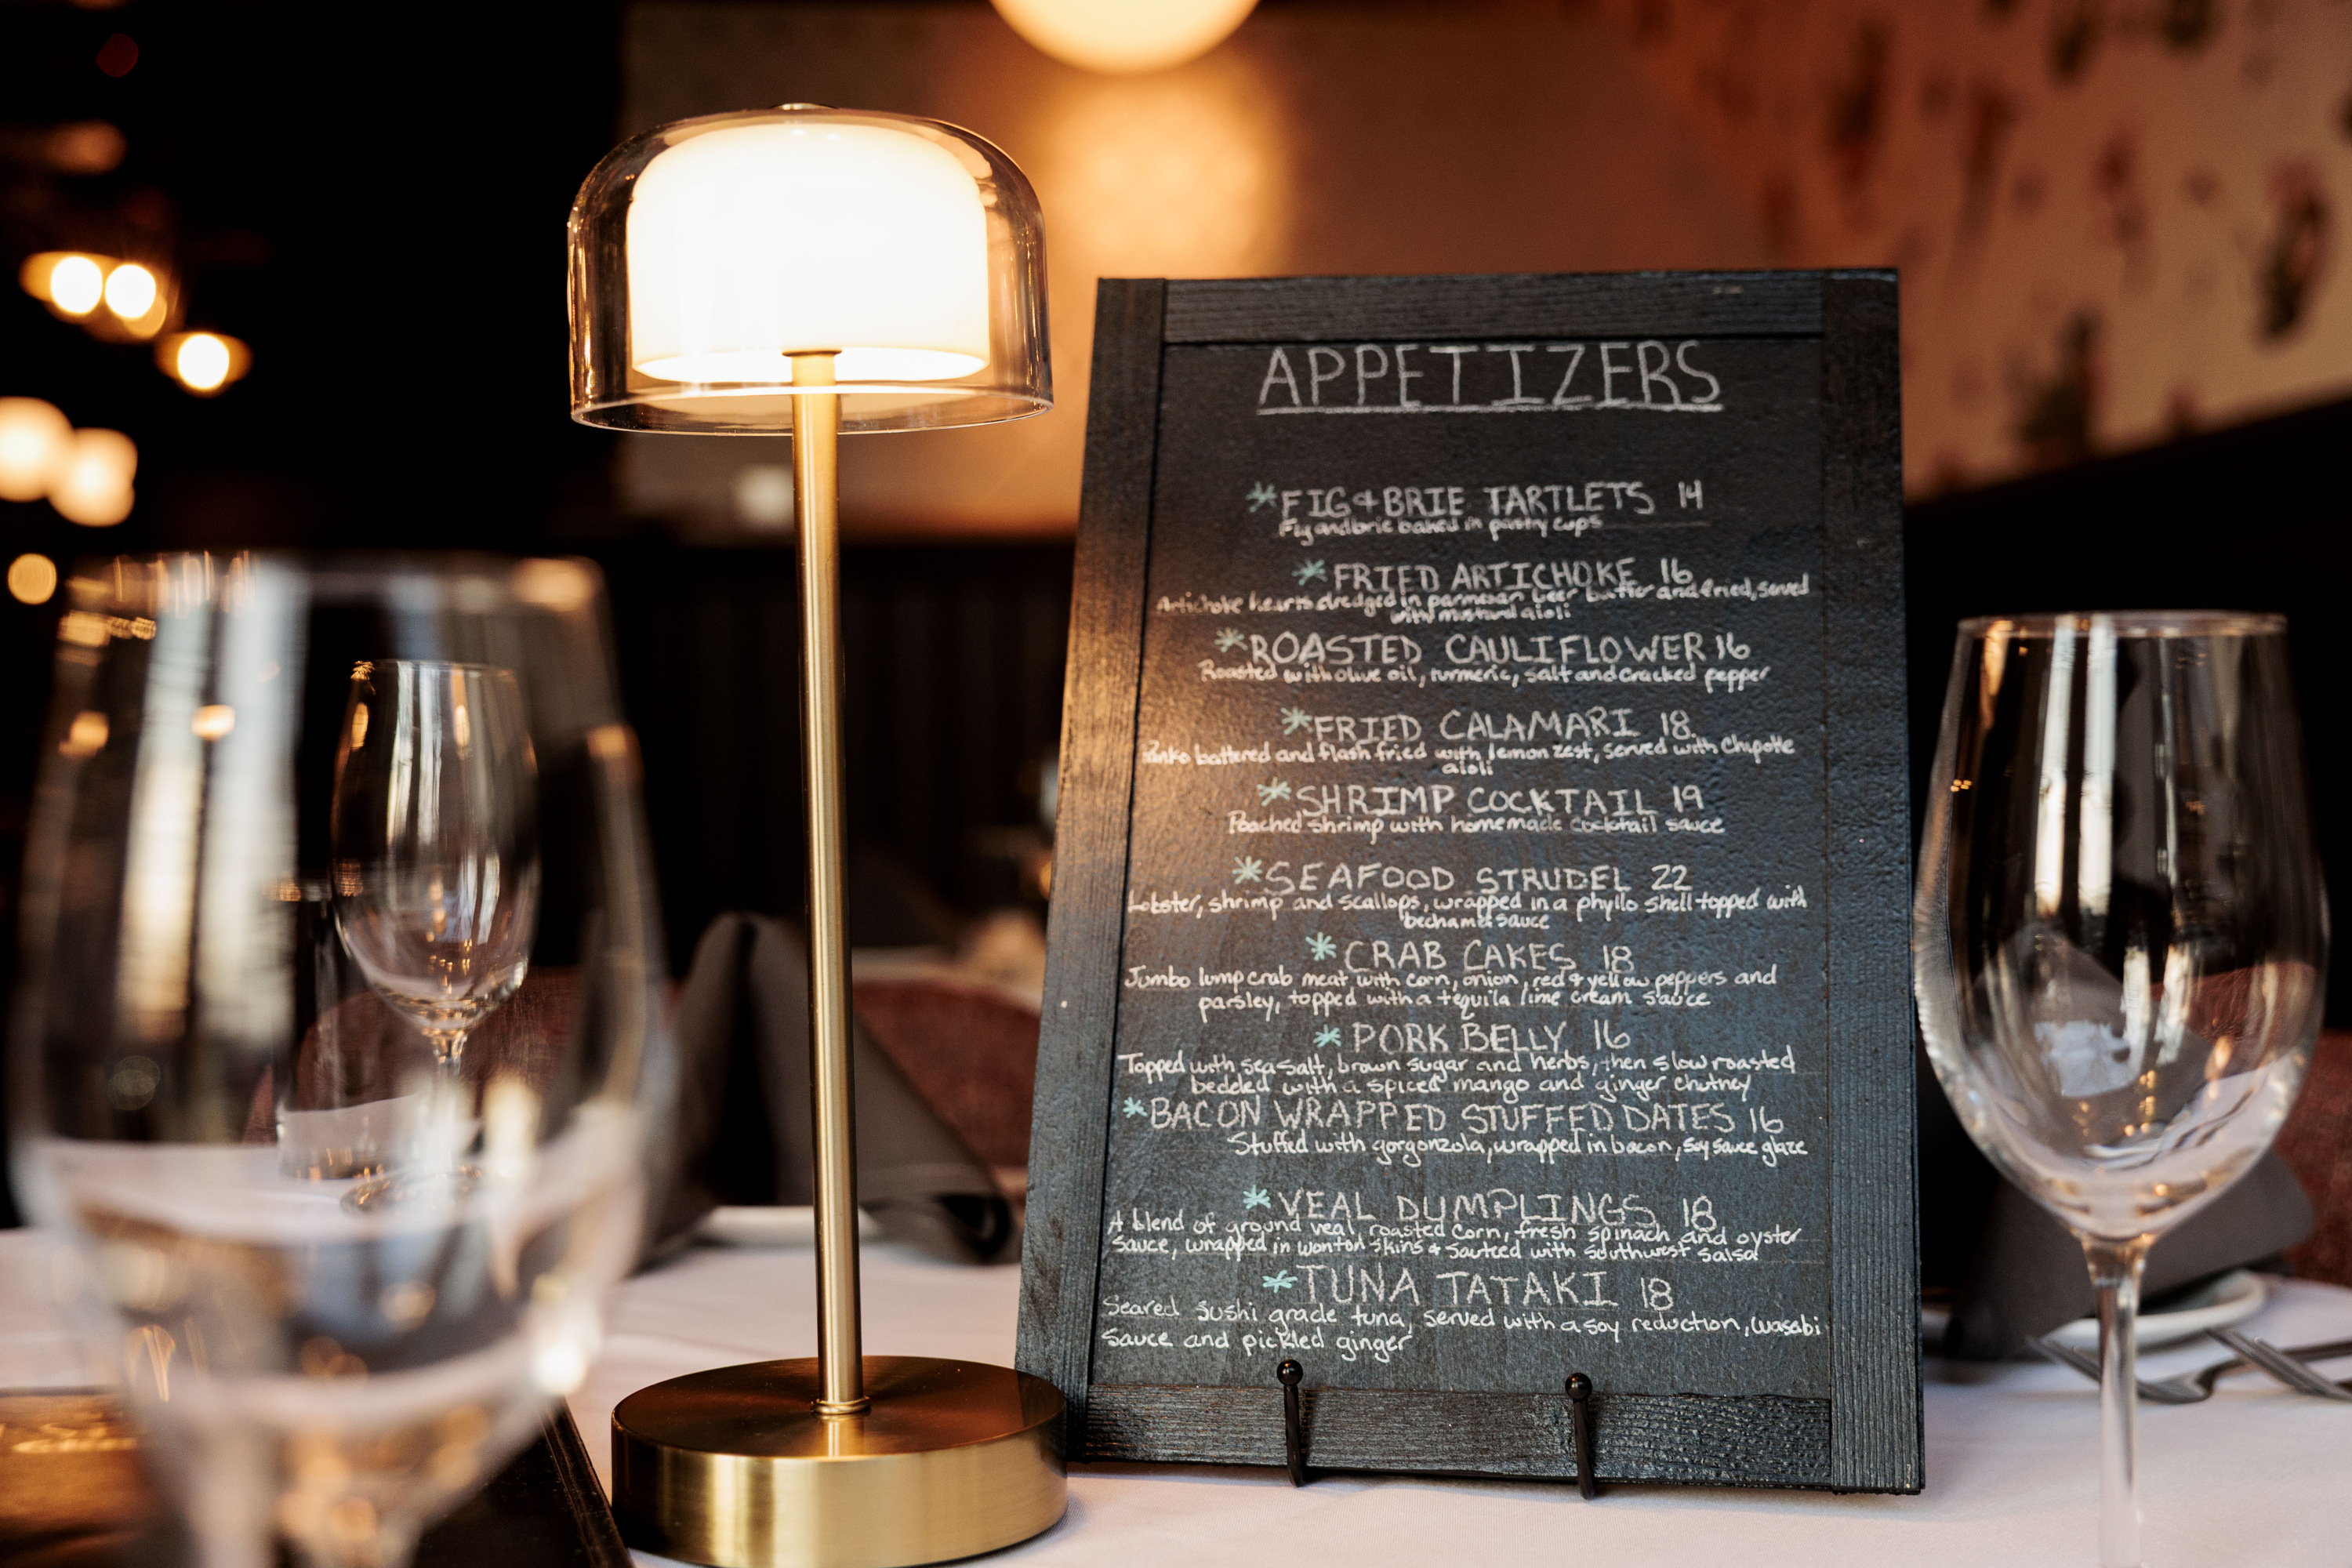 APPETIZERS
*FIG & BRIE TARTLETS 14
Fig and brie baked in pastry cups
*FRIED ARTICHOKE 16
Artichoke hearts dredged in parmesan beer batter and fried, served
with mustard aioli
*ROASTED CAULIFLOWER 16
Roasted with olive oil, turmeric, salt and cracked pepper
*FRIED CALAMARI 18
Panko battered and flash fried with lemon zest, served with Chipotle
aioli
*SHRIMP COCKTAIL 19
Poached shrimp with homemade cocktail sauce
*SEAFOOD STRUDEL 22
Lobster, shrimp and scallops, wrapped in a phyllo shell topped with
bechamel sauce
*CRAB CAKES 18
Jumbo lump crab meat with corn, onion, red & yellow peppers and
parsley, topped with a tequila lime cream sauce
*PORK BELLY 16
Topped with sea salt, brown sugar and herbs, then slow roasted
bedded with a spiced mango and ginger chutney
*BACON WRAPPED STUFFED DATES 16
Stuffed with gorgonzola, wrapped in bacon, soy sauce glaze
*VEAL DUMPLINGS 18
A blend of ground veal, roasted corn, fresh spinach and oyster
sauce, wrapped in wonton skins & sauteed with southwest salsa
*TUNA TATAKI 18
Seared sushi grade tuna, served with a soy reduction, wasabi
sauce and pickled ginger